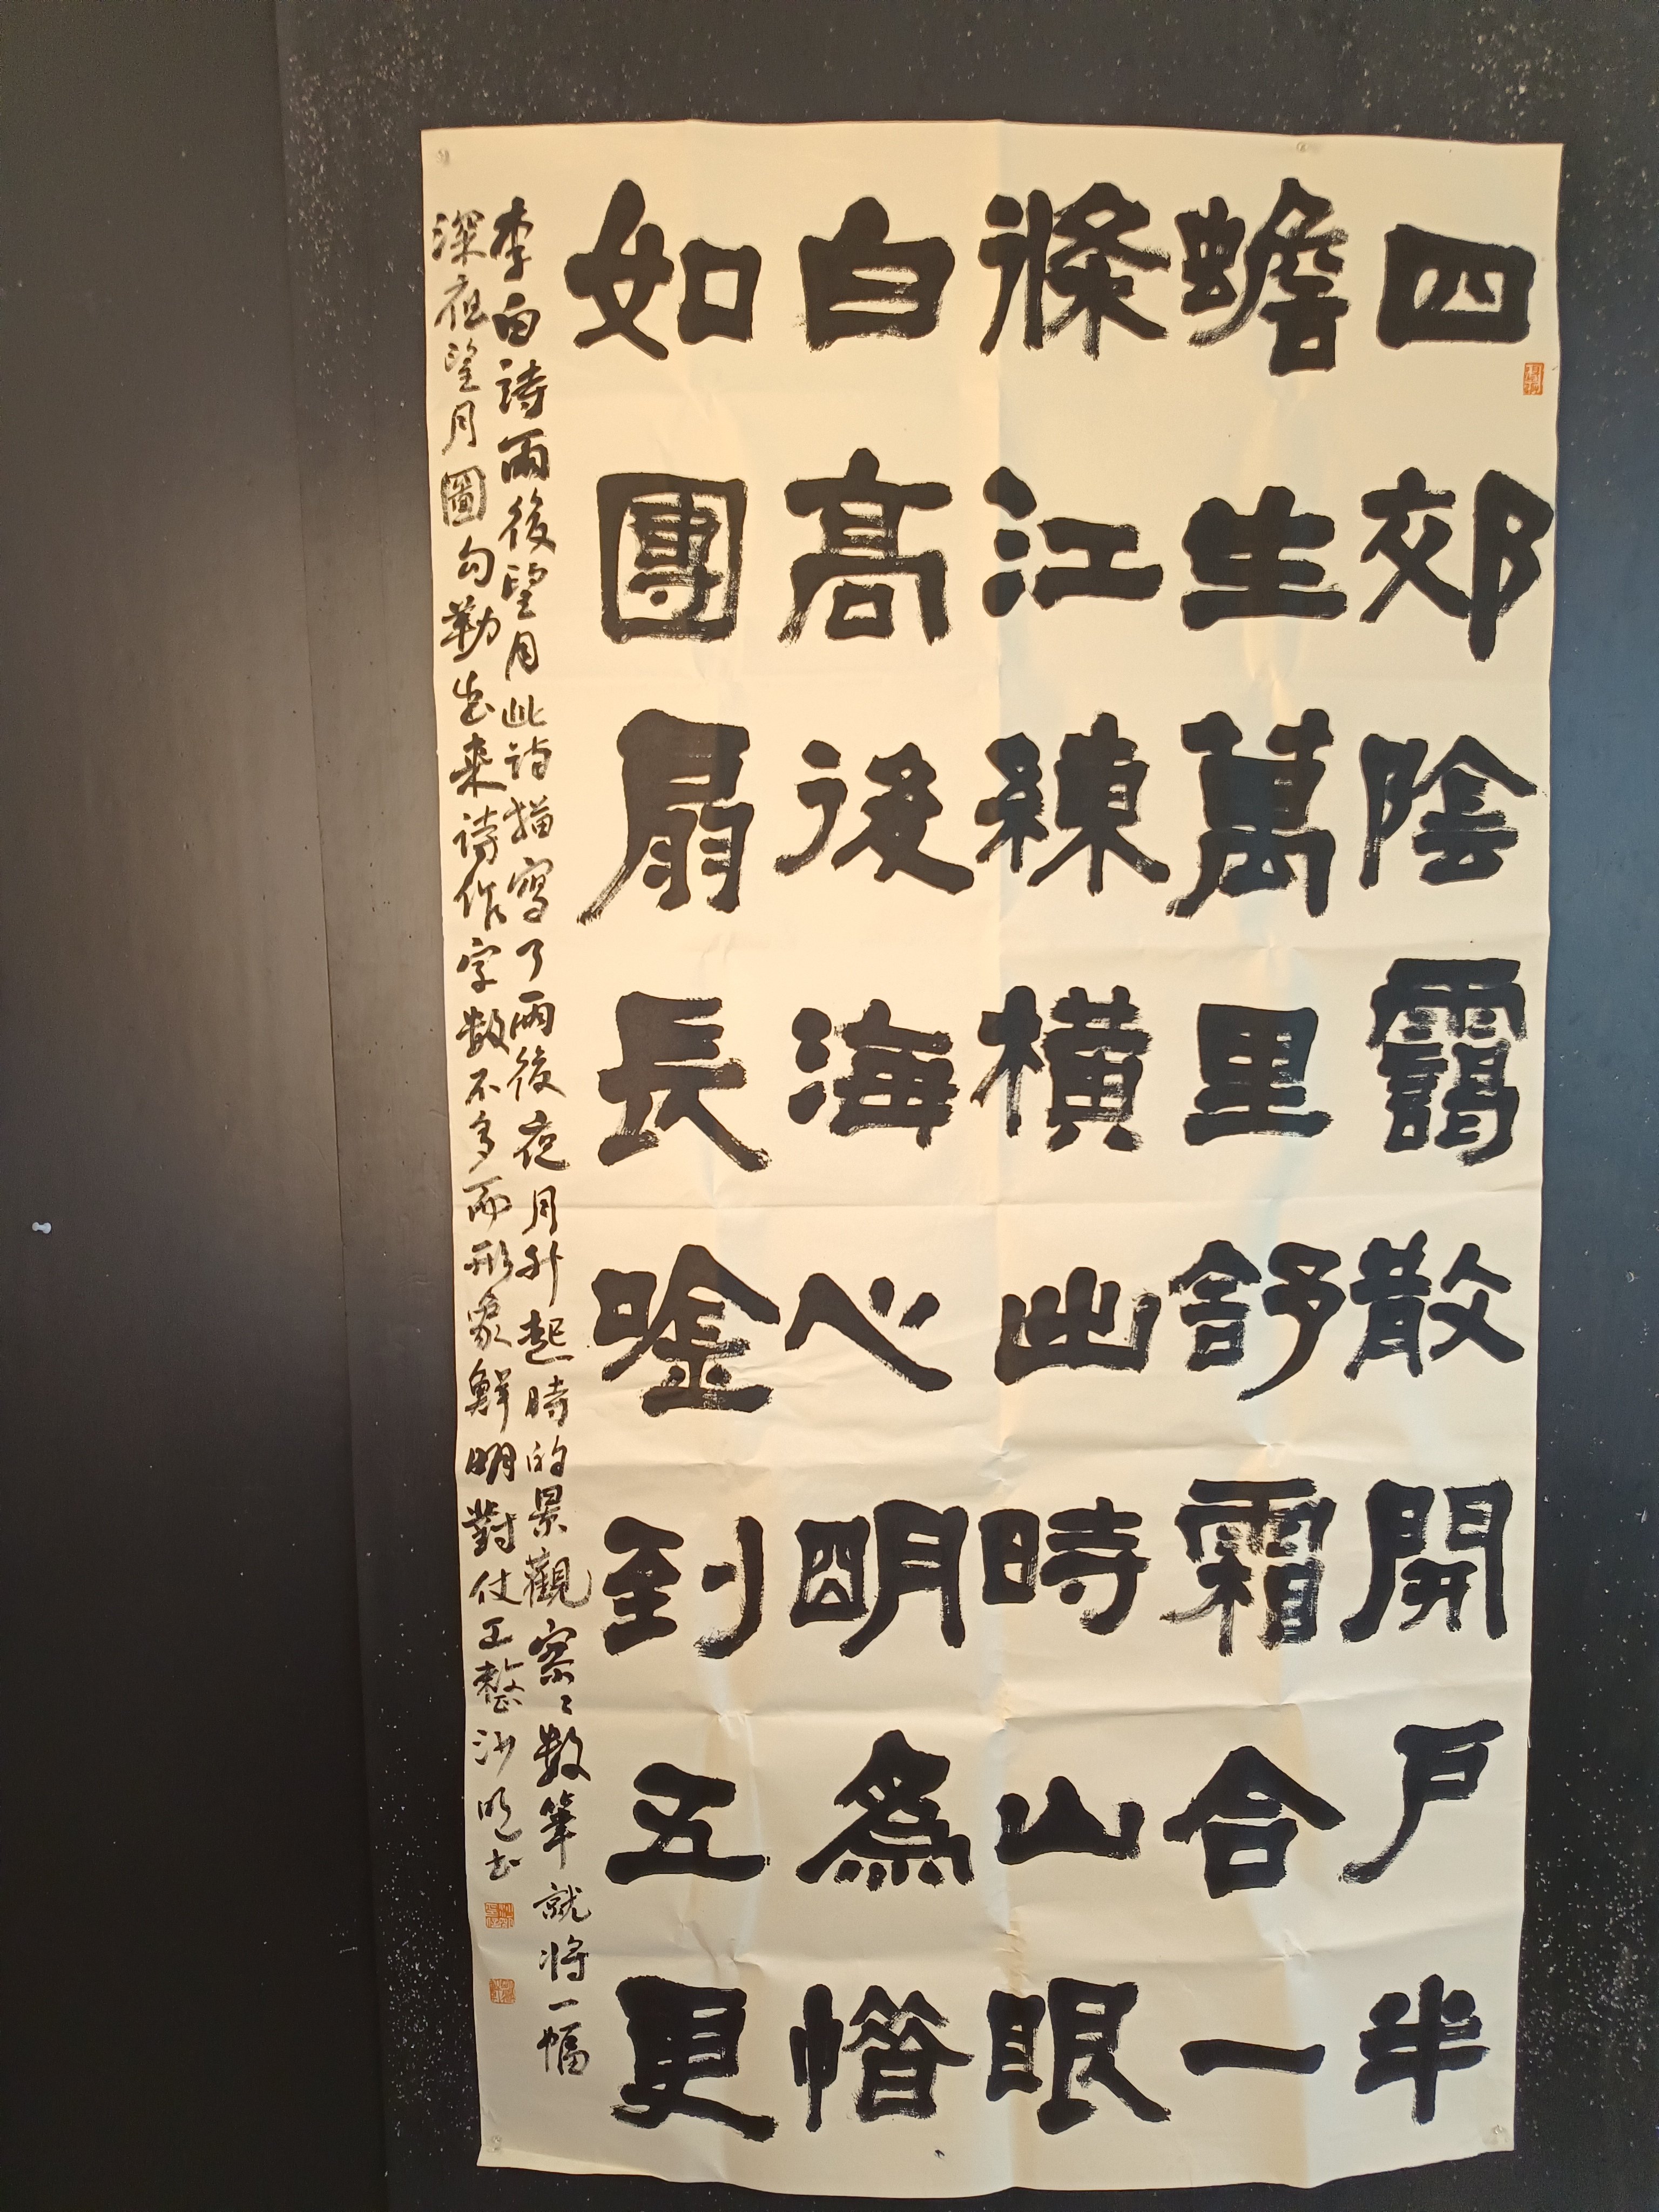 四郊陰靄散開戶半
蟾生萬里舒霜合一
條江練橫出時山眼
白高後海心明為惜
如團扇長唫到五更
李白詩雨後望月此詩描寫了雨後夜月升起時的景觀寥〻數筆就將一幅
深夜望月圖勾勒出来詩作字数不多而形象鮮明對仗工整沙明书